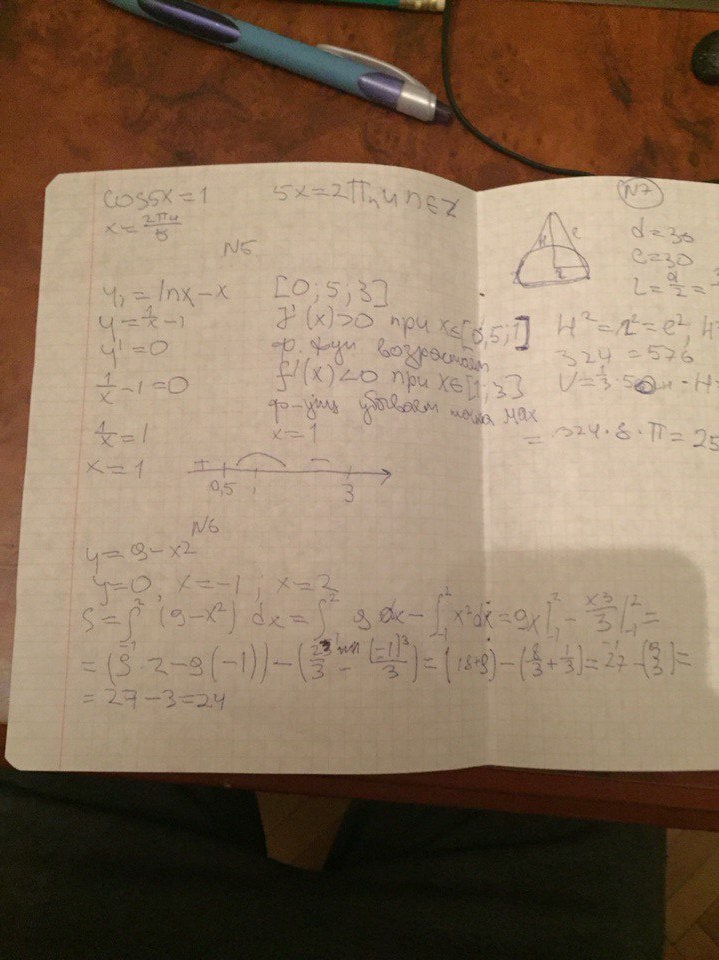 cos5x=1 5x=2πn n∈Z
x=2πn/5
N5
y₁=lnx-x [0;5;3]
y=1/x-1 f'(x)>0 при x∈[0,5;1]
y'=0 возрастает
1/x-1=0 f'(x)<0 при x∈[1;3]
убывает точка max
1/x=1 x=1
x=1
+ -
0,5 1 3
N6
y=9-x²
y=0, x=-1; x=2
S=∫₋₁² (9-x²) dx=∫₋₁² 9dx-∫₋₁² x²dx=9x|₋₁²-x³/3|₋₁²=
=(9·2-9(-1))-(2³/3-(-1)³/3)=(18+9)-(8/3+1/3)=27-(9/3)=
=27-3=24
N7
H l
r
d=36
l=30
H²=r²=l²,H
324=576
V=1/3·S·H=
=324·8·π=25